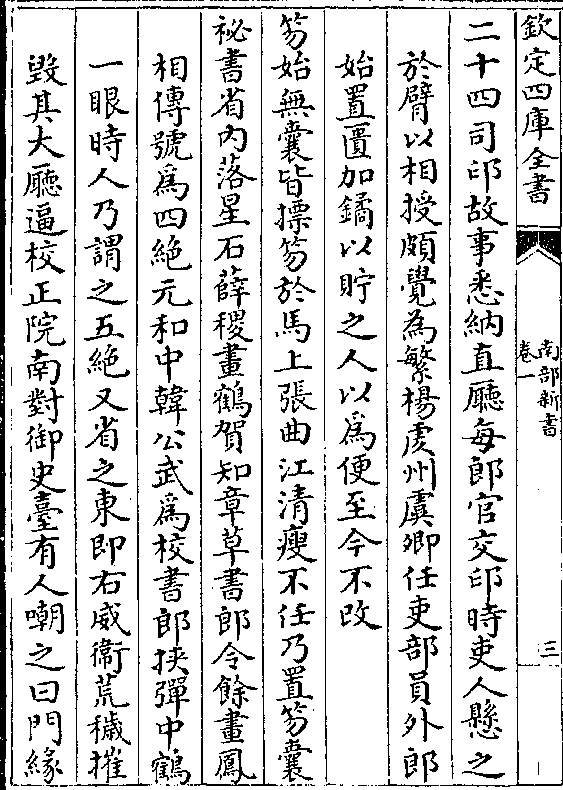 欽定四庫全書
南部新書
卷一
三
二十四司印故事悉納直廳每郎官交印時吏人懸之
於臂以相授頗覺為繁楊虔州虞卿任吏部員外郎
始置匱加鐍以貯之人以爲便至今不改
笏始無囊皆搢笏於馬上張曲江清瘦不任乃置笏囊
祕書省内落星石薛稷畫鶴賀知章草書郎令餘畫鳳
相傳號爲四絶元和中韓公武爲校書郎挾彈中鶴
一眼時人乃謂之五絶又省之東即右威衞荒穢摧
毁其大廳逼校正院南對御史臺有人嘲之曰門緣